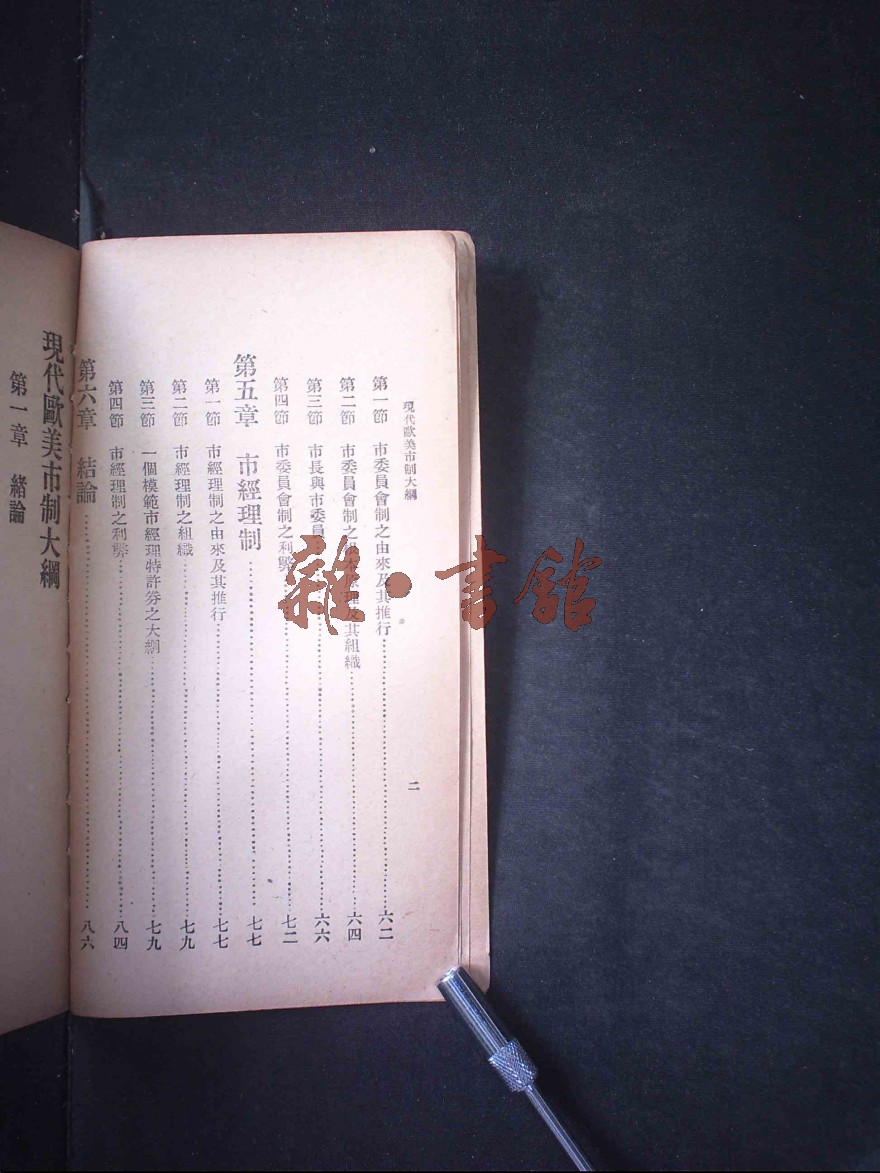 現代歐美市制大綱
二
第一節 市委員會制之由來及其推行 六二
第二節 市委員會制之 及其組織 六四
第三節 市長與市委員 六六
第四節 市委員會制之利弊 七二
第五章 市經理制 七七
第一節 市經理制之由來及其推行 七七
第二節 市經理制之組織 七九
第三節 一個模範市經理特許券之大綱 七九
第四節 市經理制之利弊 八四
第六章 結論 八六
現代歐美市制大綱
第一章 緒論
雜·書館